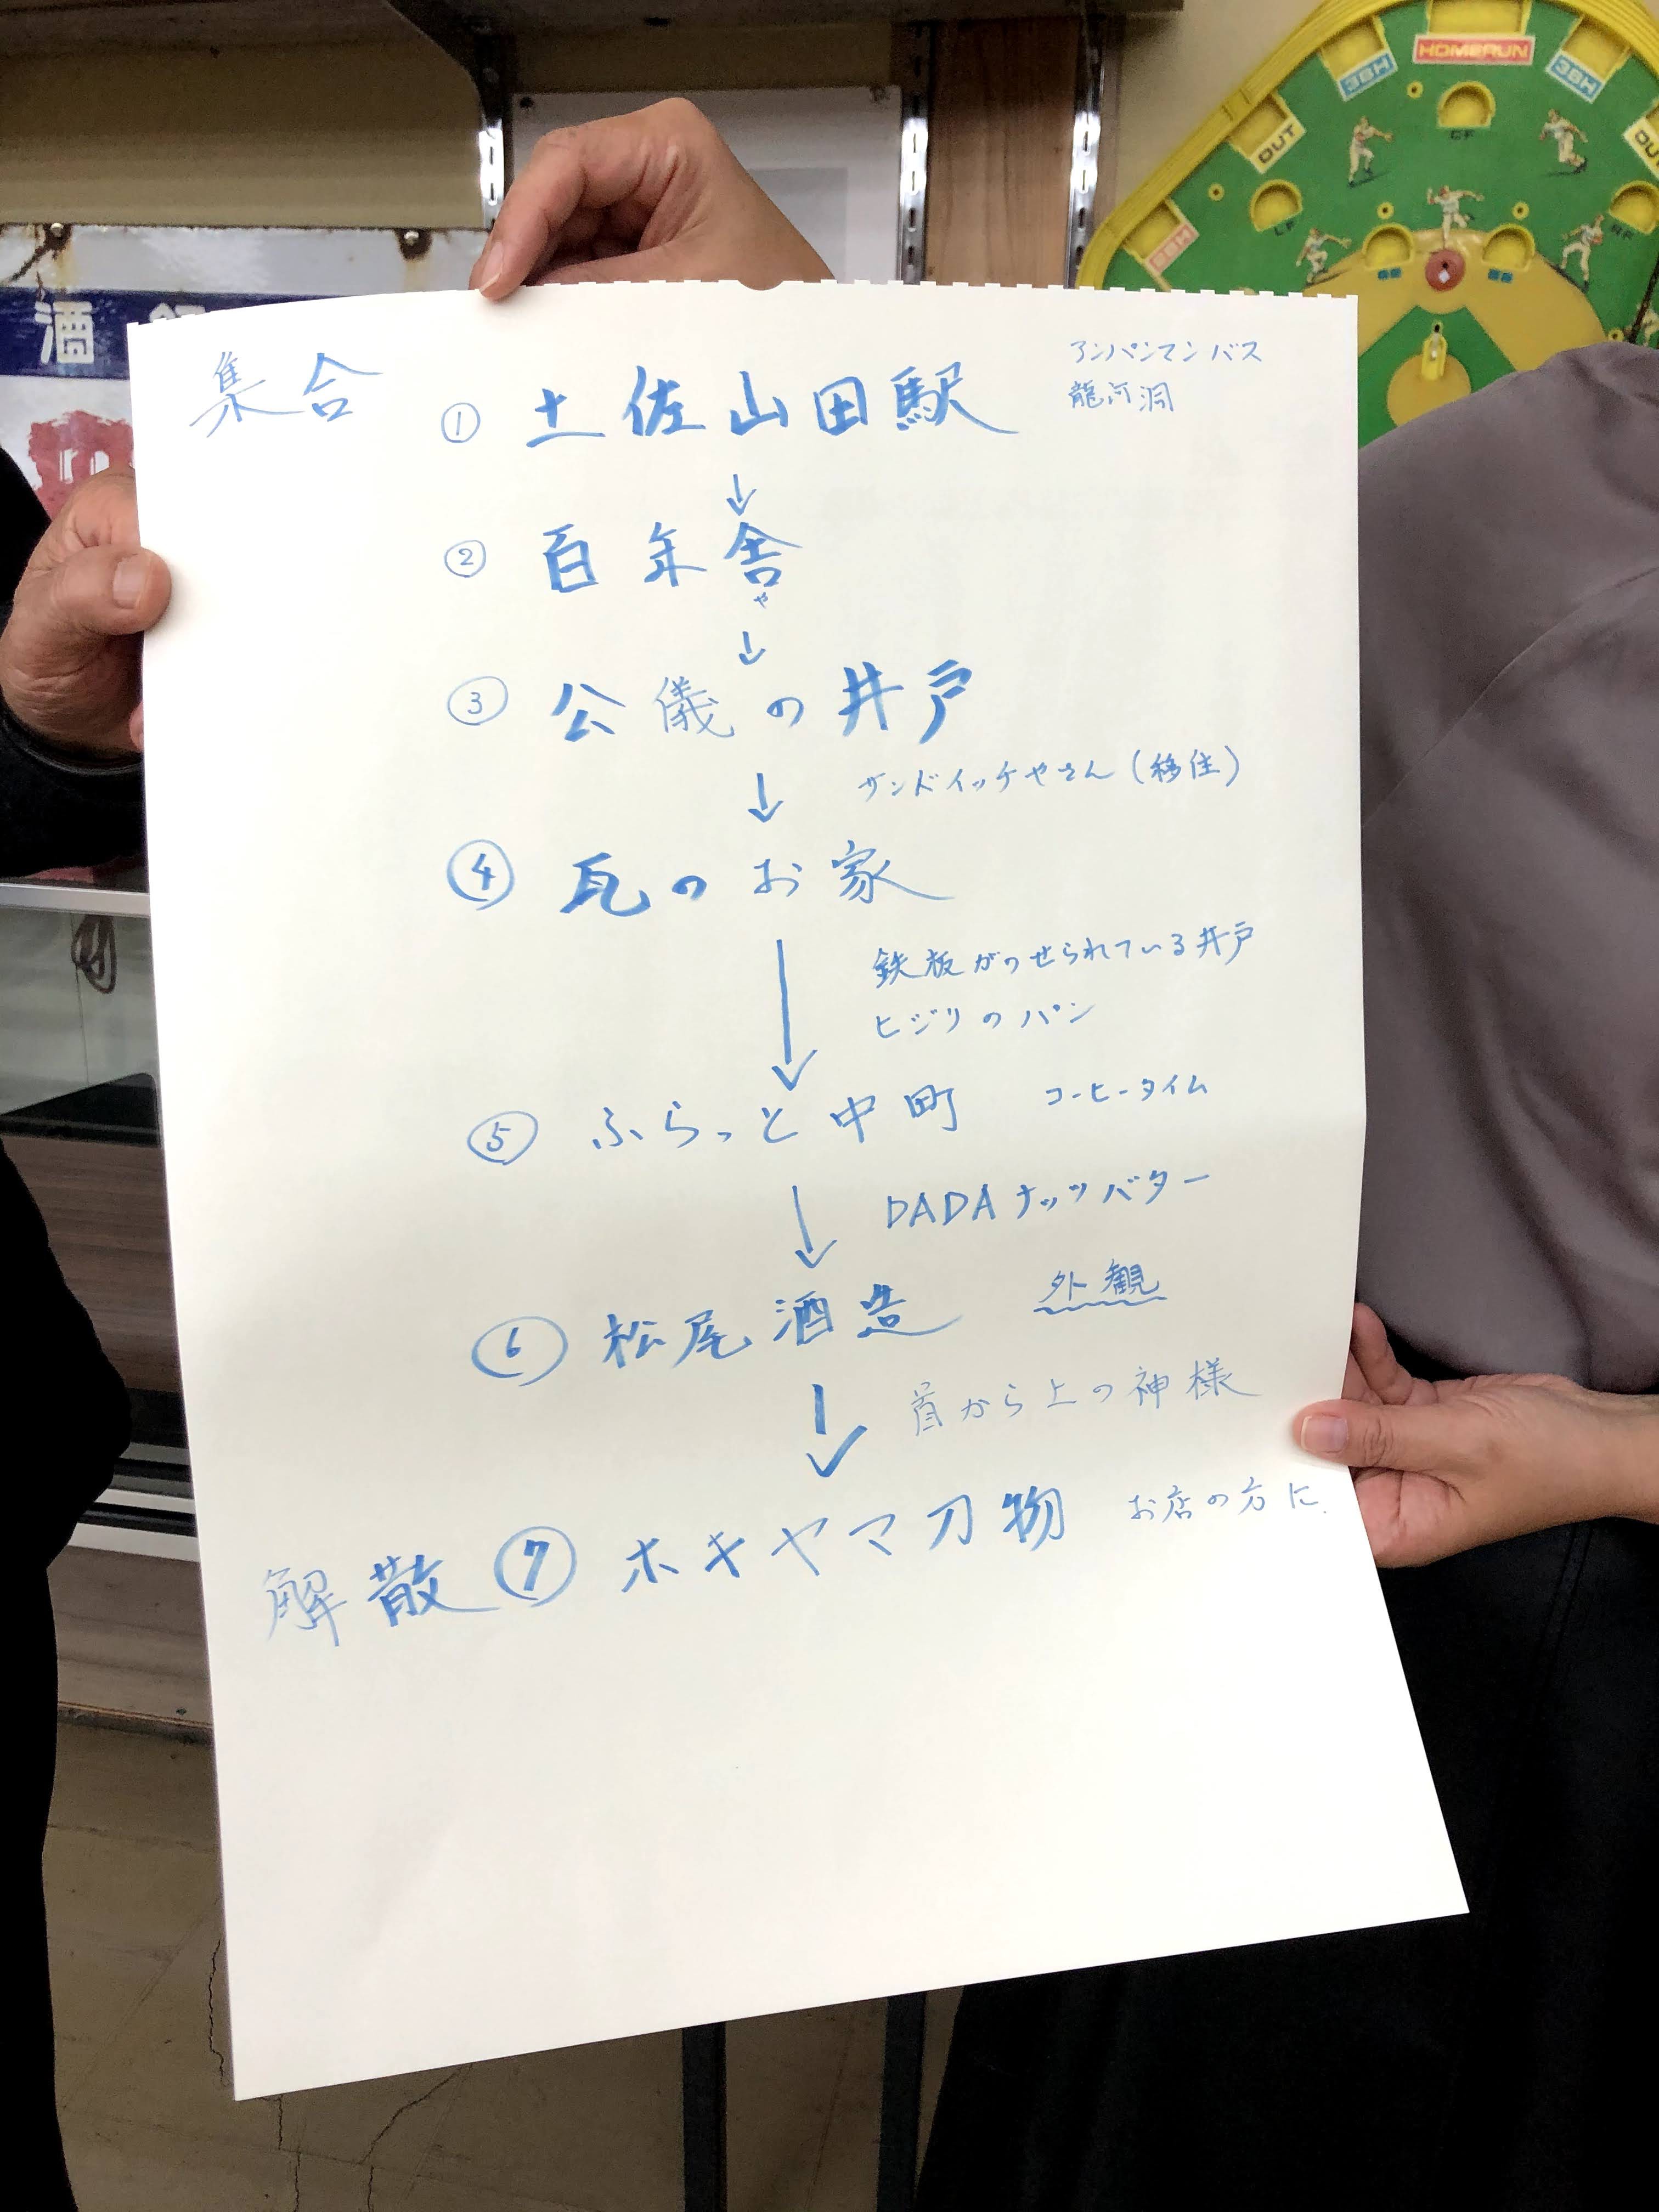 HOMERUN
3BH
3BH
OUT
CF
LF
RF
2BH
酒
集合
① 土佐山田駅
アンパンマンバス
龍河洞
↓
② 百年舎
や
↓
③ 公儀の井戸
↓
サンドイッチやさん(移住)
④ 瓦のお家
↓
鉄板がのせられている井戸
ヒジリのパン
⑤ ふらっと中町 コーヒータイム
↓
DADAナッツバター
⑥ 松尾酒造 外観
↓
首から上の神様
解散 ⑦ ホキヤマ刃物 お店の方に.